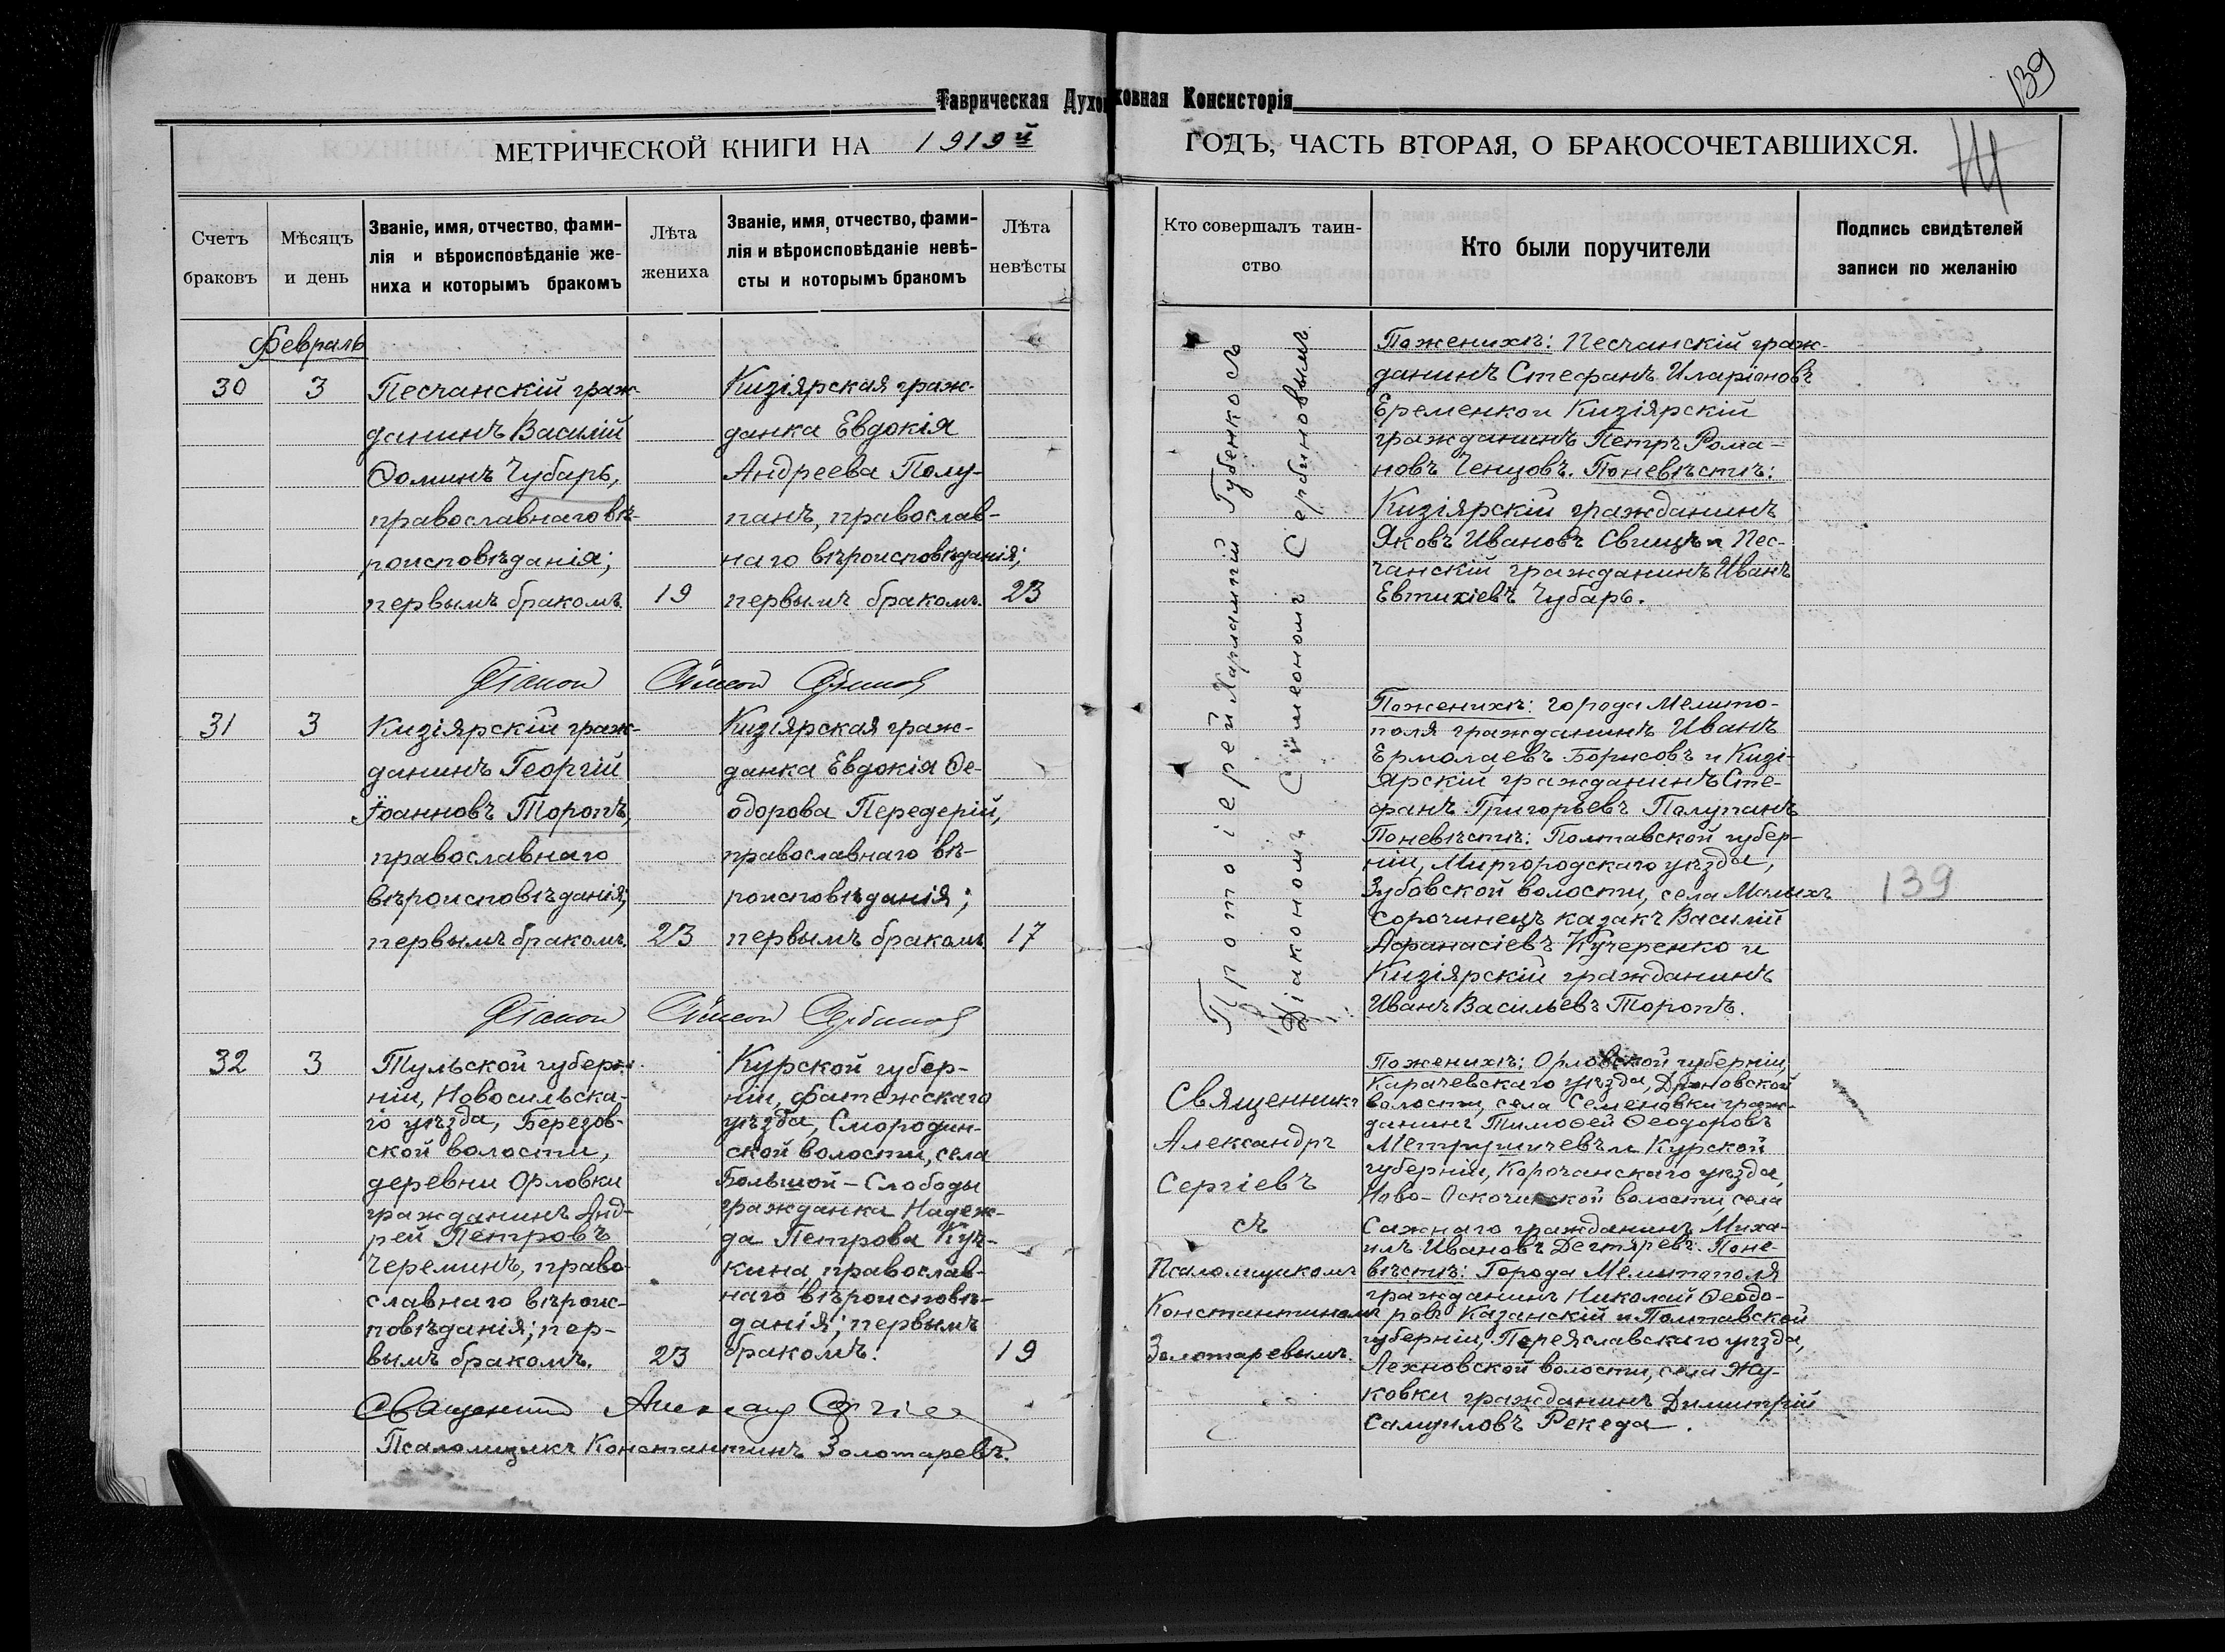 139
Таврическая Духовная Консисторія
МЕТРИЧЕСКОЙ КНИГИ НА 1919й ГОДЪ, ЧАСТЬ ВТОРАЯ, О БРАКОСОЧЕТАВШИХСЯ.
Счетъ браковъ
Мѣсяцъ и день
Званіе, имя, отчество, фами-
лія и вѣроисповѣданіе же-
ниха и которымъ бракомъ
Лѣта жениха
Званіе, имя, отчество, фами-
лія и вѣроисповѣданіе невѣ-
сты и которымъ бракомъ
Лѣта невѣсты
Кто совершалъ таин-
ство
Кто были поручители
Подпись свидѣтелей
записи по желанію
Февраль
30
3
Песчанскій граж-
данинъ Василій
Ѳоминъ Чубарь,
православнаго вѣ-
роисповѣданія;
первымъ бракомъ.
19
Кизіярская граж-
данка Евдокія
Андреева Полу-
панъ, православ-
наго вѣроисповѣданія;
первымъ бракомъ.
23
Протоіерей Харлампій Губенко съ
Діакономъ Сѵмеономъ Сербиновымъ
По женихѣ: Песчанскій граж-
данинъ Стефанъ Иларіоновъ
Еременко и Кизіярскій
гражданинъ Петръ Рома-
новъ Ченцовъ. По невѣстѣ:
Кизіярскій гражданинъ
Яковъ Ивановъ и Пес-
чанскій гражданинъ Иванъ
Евтихіевъ Чубарь.
Діаконъ Сѵмеонъ Сербиновъ
31
3
Кизіярскій граж-
данинъ Георгій
Іоанновъ Торопъ,
православнаго
вѣроисповѣданія;
первымъ бракомъ.
23
Кизіярская граж-
данка Евдокія Ѳе-
одорова Передерій,
православнаго вѣ-
роисповѣданія;
первымъ бракомъ
17
По женихѣ: города Мелито-
поля гражданинъ Иванъ
Ермолаевъ Борисовъ и Кизі-
ярскій гражданинъ Сте-
фанъ Григорьевъ Полупанъ
По невѣстѣ: Полтавской губер-
ніи, Миргородскаго уѣзда,
Зубовской волости, села Малыхъ
Сорочинецъ казакъ Василій
Афанасіевъ Кучеренко и
Кизіярскій гражданинъ
Иванъ Васильевъ Торопъ.
139
Діаконъ Сѵмеонъ Сербиновъ
32
3
Тульской губер-
ніи, Новосильска-
го уѣзда, Березов-
ской волости,
деревни Орловки
гражданинъ Анд-
рей Петровъ
Череминъ, право-
славнаго вѣроис-
повѣданія; пер-
вымъ бракомъ.
23
Курской губер-
ніи, Фатежскаго
уѣзда, Смородин-
ской волости, села
Большой-Слободы
гражданка Надеж-
да Петрова
кина, православ-
наго вѣроисповѣ-
данія; первымъ
бракомъ.
19
Священникъ
Александръ
Сергіевъ
съ
Псаломщикомъ
Константиномъ
Золотаревымъ.
По женихѣ: Орловской губерніи,
Карачевскаго уѣзда, Дроновской
волости, села Семеновки граж-
данинъ Тимоѳей Ѳеодоровъ
и Курской
губерніи, Корочанскаго уѣзда,
Ново- волости, села
Сажнаго гражданинъ Миха-
илъ Ивановъ Дегтяревъ. По не-
вѣстѣ: Города Мелитополя
гражданинъ Николай Ѳеодо-
ровъ Казанскій и Полтавской
губерніи, Переяславскаго уѣзда,
Лехновской волости, села Жу-
ковки гражданинъ Димитрій
Самуиловъ Рекеда.
Священникъ Александръ Сергіевъ
Псаломщикъ Константинъ Золотаревъ.